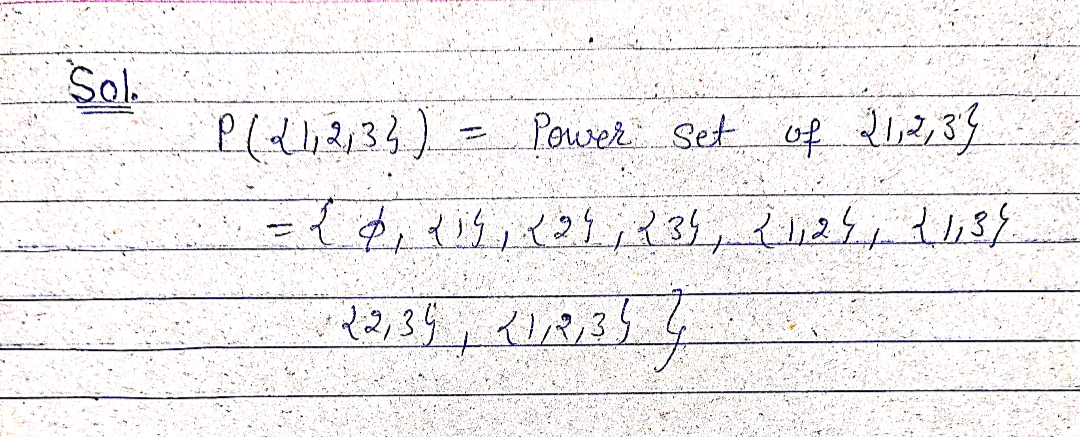 Sol.
P({1,2,3}) = Power set of {1,2,3}
= { ϕ, {1}, {2}, {3}, {1,2}, {1,3}
{2,3}, {1,2,3} }